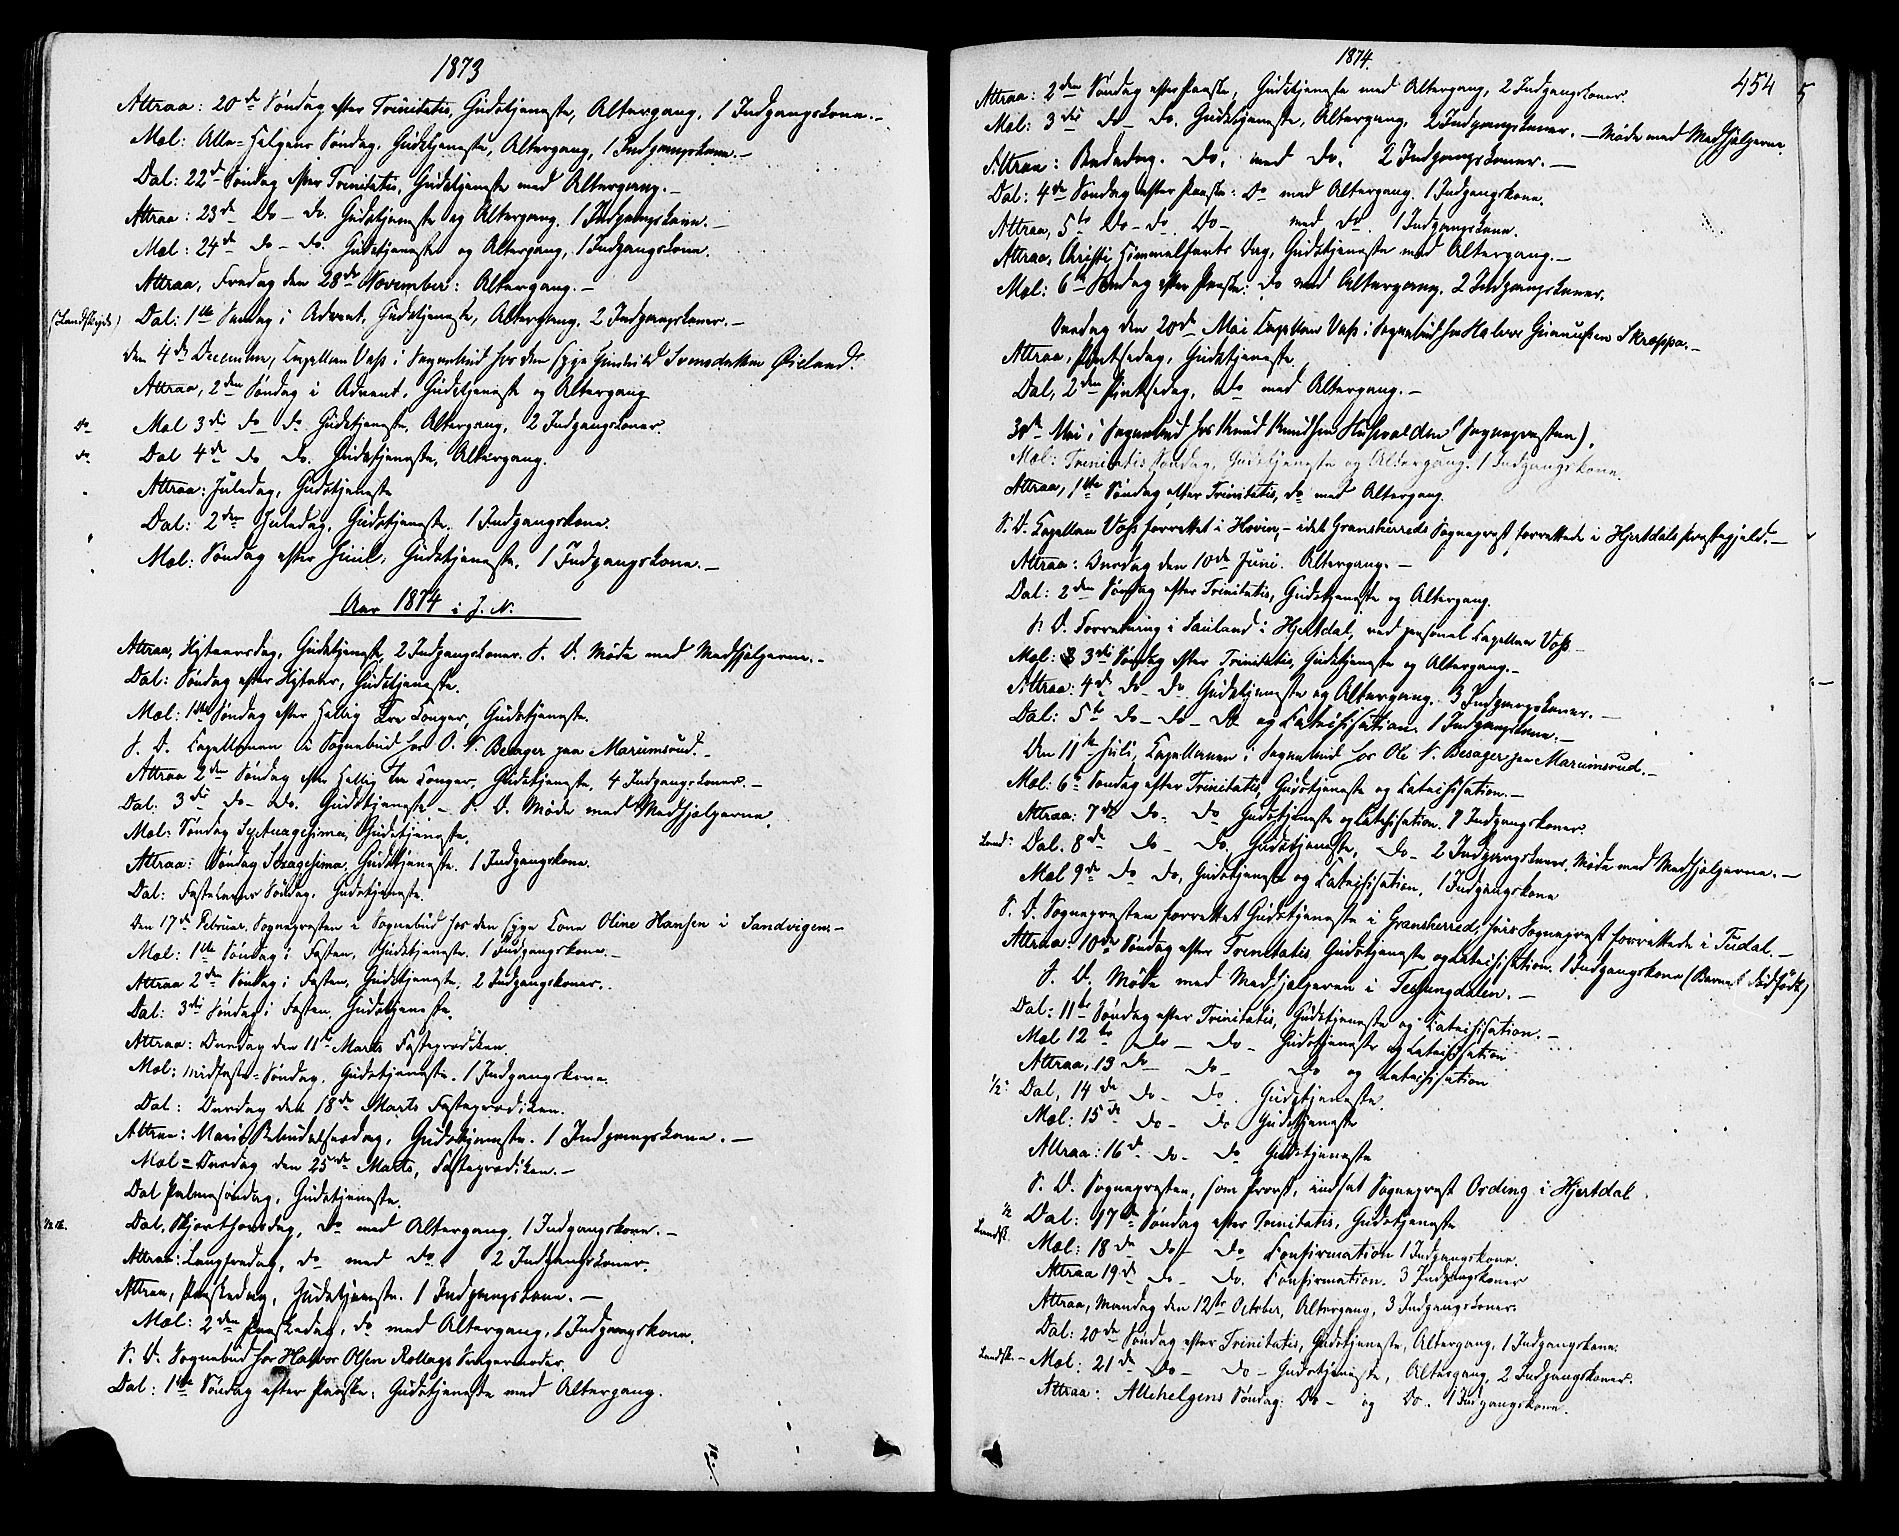 1873
Attraa: 20de Søndag efter Trinitatis, Gudstjeneste, Altergang, 1 Indgangskone.-
Mæl: Alle-Helgens Søndag, Gudstjeneste, Altergang, 1 Indgangskone.-
Dal: 22de Søndag efter Trinitatis, Gudstjeneste med Altergang.-
Attraa: 23de Do - Do. Gudstjeneste og Altergang. 1 Indgangskone.-
Mæl: 24de Do - Do. Gudstjeneste og Altergang, 1 Indgangskone.
Attraa, Fredag den 28de November: Altergang.-
Dal: 1ste Søndag i Advent, Gudstjeneste, Altergang. 2 Indgangskoner.-
den 4de December, Capellan Voss i Sognebud hos den syge Gunhild Svensdatter Øieland.
Attraa, 2den Søndag i Advent, Gudstjeneste og Altergang
Do Mæl 3die do do Gudstjeneste, Altergang, 2 Indgangskoner.
do Dal 4de do do. Gudstjeneste, Altergang.
Attraa: Juledag, Gudstjeneste
Dal: 2den Juledag, Gudstjeneste. 1 Indgangskone.
Mæl: Søndag efter Juul, Gudstjeneste, 1 Indgangskone.-
Aar 1874 i J. N.
Attraa, Nytaarsdag, Gudstjeneste, 2 Indgangskoner. S. D. Møde med Medhjælperne.-
Dal: Søndag efter Nytaar, Gudstjeneste.
Mæl: 1ste Søndag efter Hellig Tre Konger, Gudstjeneste.
S. D. Capellanen i Sognebud hos O. N. Besager paa Marumsrud.-
Attraa 2den Søndag efter Hellig tre Konger, Gudstjeneste, 4 Indgangskoner.-
Dal. 3die do- Do. Gudstjeneste - S. D. Møde med Medhjælperne.
Mæl: Søndag Septuagesima, Gudstjeneste.
Attraa: Søndag Sexagesima, Gudstjeneste. 1 Indgangskone.
Dal: Fastelavns Søndag, Gudstjeneste.
Den 17de Februar, Sognepresten i Sognebud hos den syge Kone Oline Hansen i Sandvigen.-
Mæl: 1ste Søndag i Fasten, Gudstjeneste. 1 Indgangskone.-
Attraa 2den Søndag i Fasten, Gudstjeneste. 2 Indgangskoner.
Dal: 3die Søndag i Fasten, Gudstjeneste.
Attraa: Onsdag den 11te Marts Fasteprædiken.
Mæl: Midfaste-Søndag, Gudstjeneste. 1 Indgangskone.
Dal: Onsdag den 18de Marts Fasteprædiken.
Attraa: Mariæ Bebudelsesdag, Gudstjeneste. 1 Indgangskone.-
Mæl= Onsdag den 25de Marts, Fasteprædiken.-
Dal Palmesøndag, Gudstjeneste.
Dal, Skjærthorsdag, do med Altergang, 1 Indgangskone.-
Attraa: Langfredag, do med do. 2 Indgangskoner.
Attraa, Paaskedag, Gudstjeneste. 1 Indgangskone.-
Mæl: 2den Paaskedag, do med Altergang, 1 Indgangskone.
S. D. Sognebud hos Halvor Olsen Rollags Svigermoder.
Dal: 1ste Søndag efter Paaske, Gudstjeneste med Altergang.
1874.
454
Attraa: 2den Søndag efter Paaske, Gudstjeneste med Altergang, 2 Indgangskoner.
Mæl: 3die do - do. Gudstjeneste, Altergang, 2 Indgangskoner.-Møde med Medhjælperne.
Attraa: Bededag. Do, med do, 2 Indgangskoner.-
Dal: 4de Søndag efter Paaske: Do med Altergang. 1 Indgangskone.
Attraa, 5te Do - do. Do - med do. 1 Indgangskone.
Attraa, Christi Himmelfarts Dag, Gudstjeneste med Altergang.-
Mæl: 6te Søndag efter Paaske. do med Altergang. 2 Indgangskoner.
Onsdag den 20de Mai Capellan Voss i Sognebud hos Halvor Skræppa.-
Attraa, Pintsedag, Gudstjeneste.
Dal, 2den Pintsedag, do med Altergang.-
30te Mai i Sognebud hos Knud Knudsen Husevolden (Sognepresten).
Mæl: Trinitatis Søndag, Gudstjeneste og Altergang. 1 Indgangskone.
Attraa, 1ste Søndag efter Trinitatis, do med Altergang.
S. D. Capellan Voss forrettet i Hovin,- idet Gransherreds Sogneprest forrettede i Hjertdals Prestegjeld.-
Attraa: Onsdag den 10de Juni. Altergang.-
Dal: 2den Søndag efter Trinitatis, Gudstjeneste og Altergang.
S. D. Forretning i Sauland i Hjertdal, ved personel Capellan Voss
Mæl: 3die Søndag efter Trinitatis, Gudstjeneste og Altergang.-
Attraa: 4de do - do Gudstjeneste og Altergang. 3 Indgangskoner.-
Dal: 5te do - do - do og Catechisation. 1 Indgangskone.-
Den 11te Juli, Capellanen i Sognebud hos Ole N. Besager paa Marumsrud.-
Mæl: 6te Søndag efter Trinitatis, Gudstjeneste og Catechisation.-
Attraa: 7de do - do Gudstjeneste og Catechisation. Indgangskoner.
Land: Dal: 8de do - do. Gudstjeneste, do - 2 Indgangskoner, Møde med Medhjælperne.-
Mæl 9de do do, Gudstjeneste og Catechisation, 1 Indgangskone
S. D. Sognepresten forrettet Gudstjeneste i Gransherred, hvis Sogneprest forrettede i Tudal.-
Attraa: 10de Søndag efter Trinitatis, Gudstjeneste og Catechisation. 1 Indgangskone (Barnet dødfødt)
S. D. Møde med Medhjælperen i Tessungdalen.-
Dal: 11te Søndag efter Trinitatis, Gudstjeneste og Catechisation.-
Mæl 12te Do - do - Gudstjeneste og Catechisation
Attraa, 13de do - do og Catechisation
1/2: Dal, 14de do - do. Gudstjeneste.
Mæl: 15de do - do Gudstjeneste
Attraa: 16de do - do Gudstjeneste
S. D. Sognepresten, som Provst, indsat Sogneprest Ording i Hjertdal.
1/2 Dal: 17de Søndag efter Trinitatis, Gudstjeneste
Landsk. Mæl: 18de do - do Confirmation 1 Indgangskone.
Attraa 19de do - do. Confirmation. 3 Indgangskoner
Attraa, Mandag den 12te October, Altergang, 3 Indgangskoner.
Dal: 20de Søndag efter Trinitatis, Gudstjeneste, Altergang, 1 Indgangskone.
Landsk.- Mæl: 21de do - do - Gudstjeneste, Altergang, 2 Indgangskoner.
Attraa: Allehelgens Søndag: Do - og Do. 1 Indgangskone.